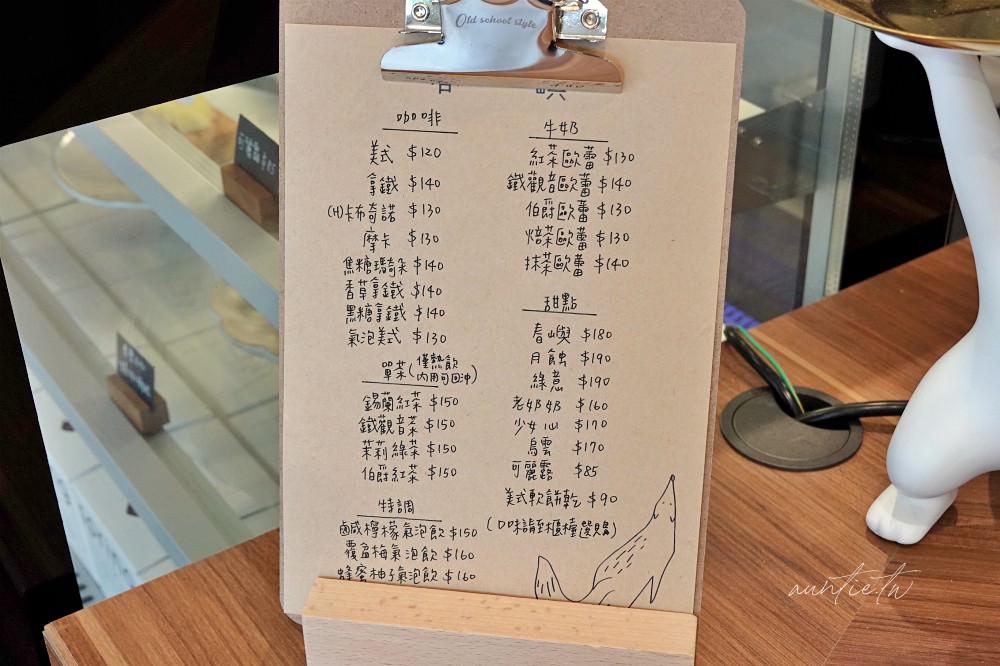 Old school style
咖啡
美式 $120
拿鐵 $140
(H)卡布奇諾 $130
摩卡 $130
焦糖瑪奇朵 $140
香草拿鐵 $140
黑糖拿鐵 $140
氣泡美式 $130
單茶(僅熱飲
內用可回沖)
錫蘭紅茶 $150
鐵觀音茶 $150
茉莉綠茶 $150
伯爵紅茶 $150
特調
鹵咸檸檬氣泡飲 $150
覆盆梅氣泡飲 $160
蜂蜜柚子氣泡飲 $160
牛奶
紅茶歐蕾 $130
鐵觀音歐蕾 $140
伯爵歐蕾 $130
焙茶歐蕾 $130
抹茶歐蕾 $140
甜點
春嶼 $180
月蝕 $190
綠意 $190
老奶奶 $160
少女心 $170
烏雲 $170
可麗露 $85
美式軟餅乾 $90
(口味請至櫃檯選購)
auntie.tw